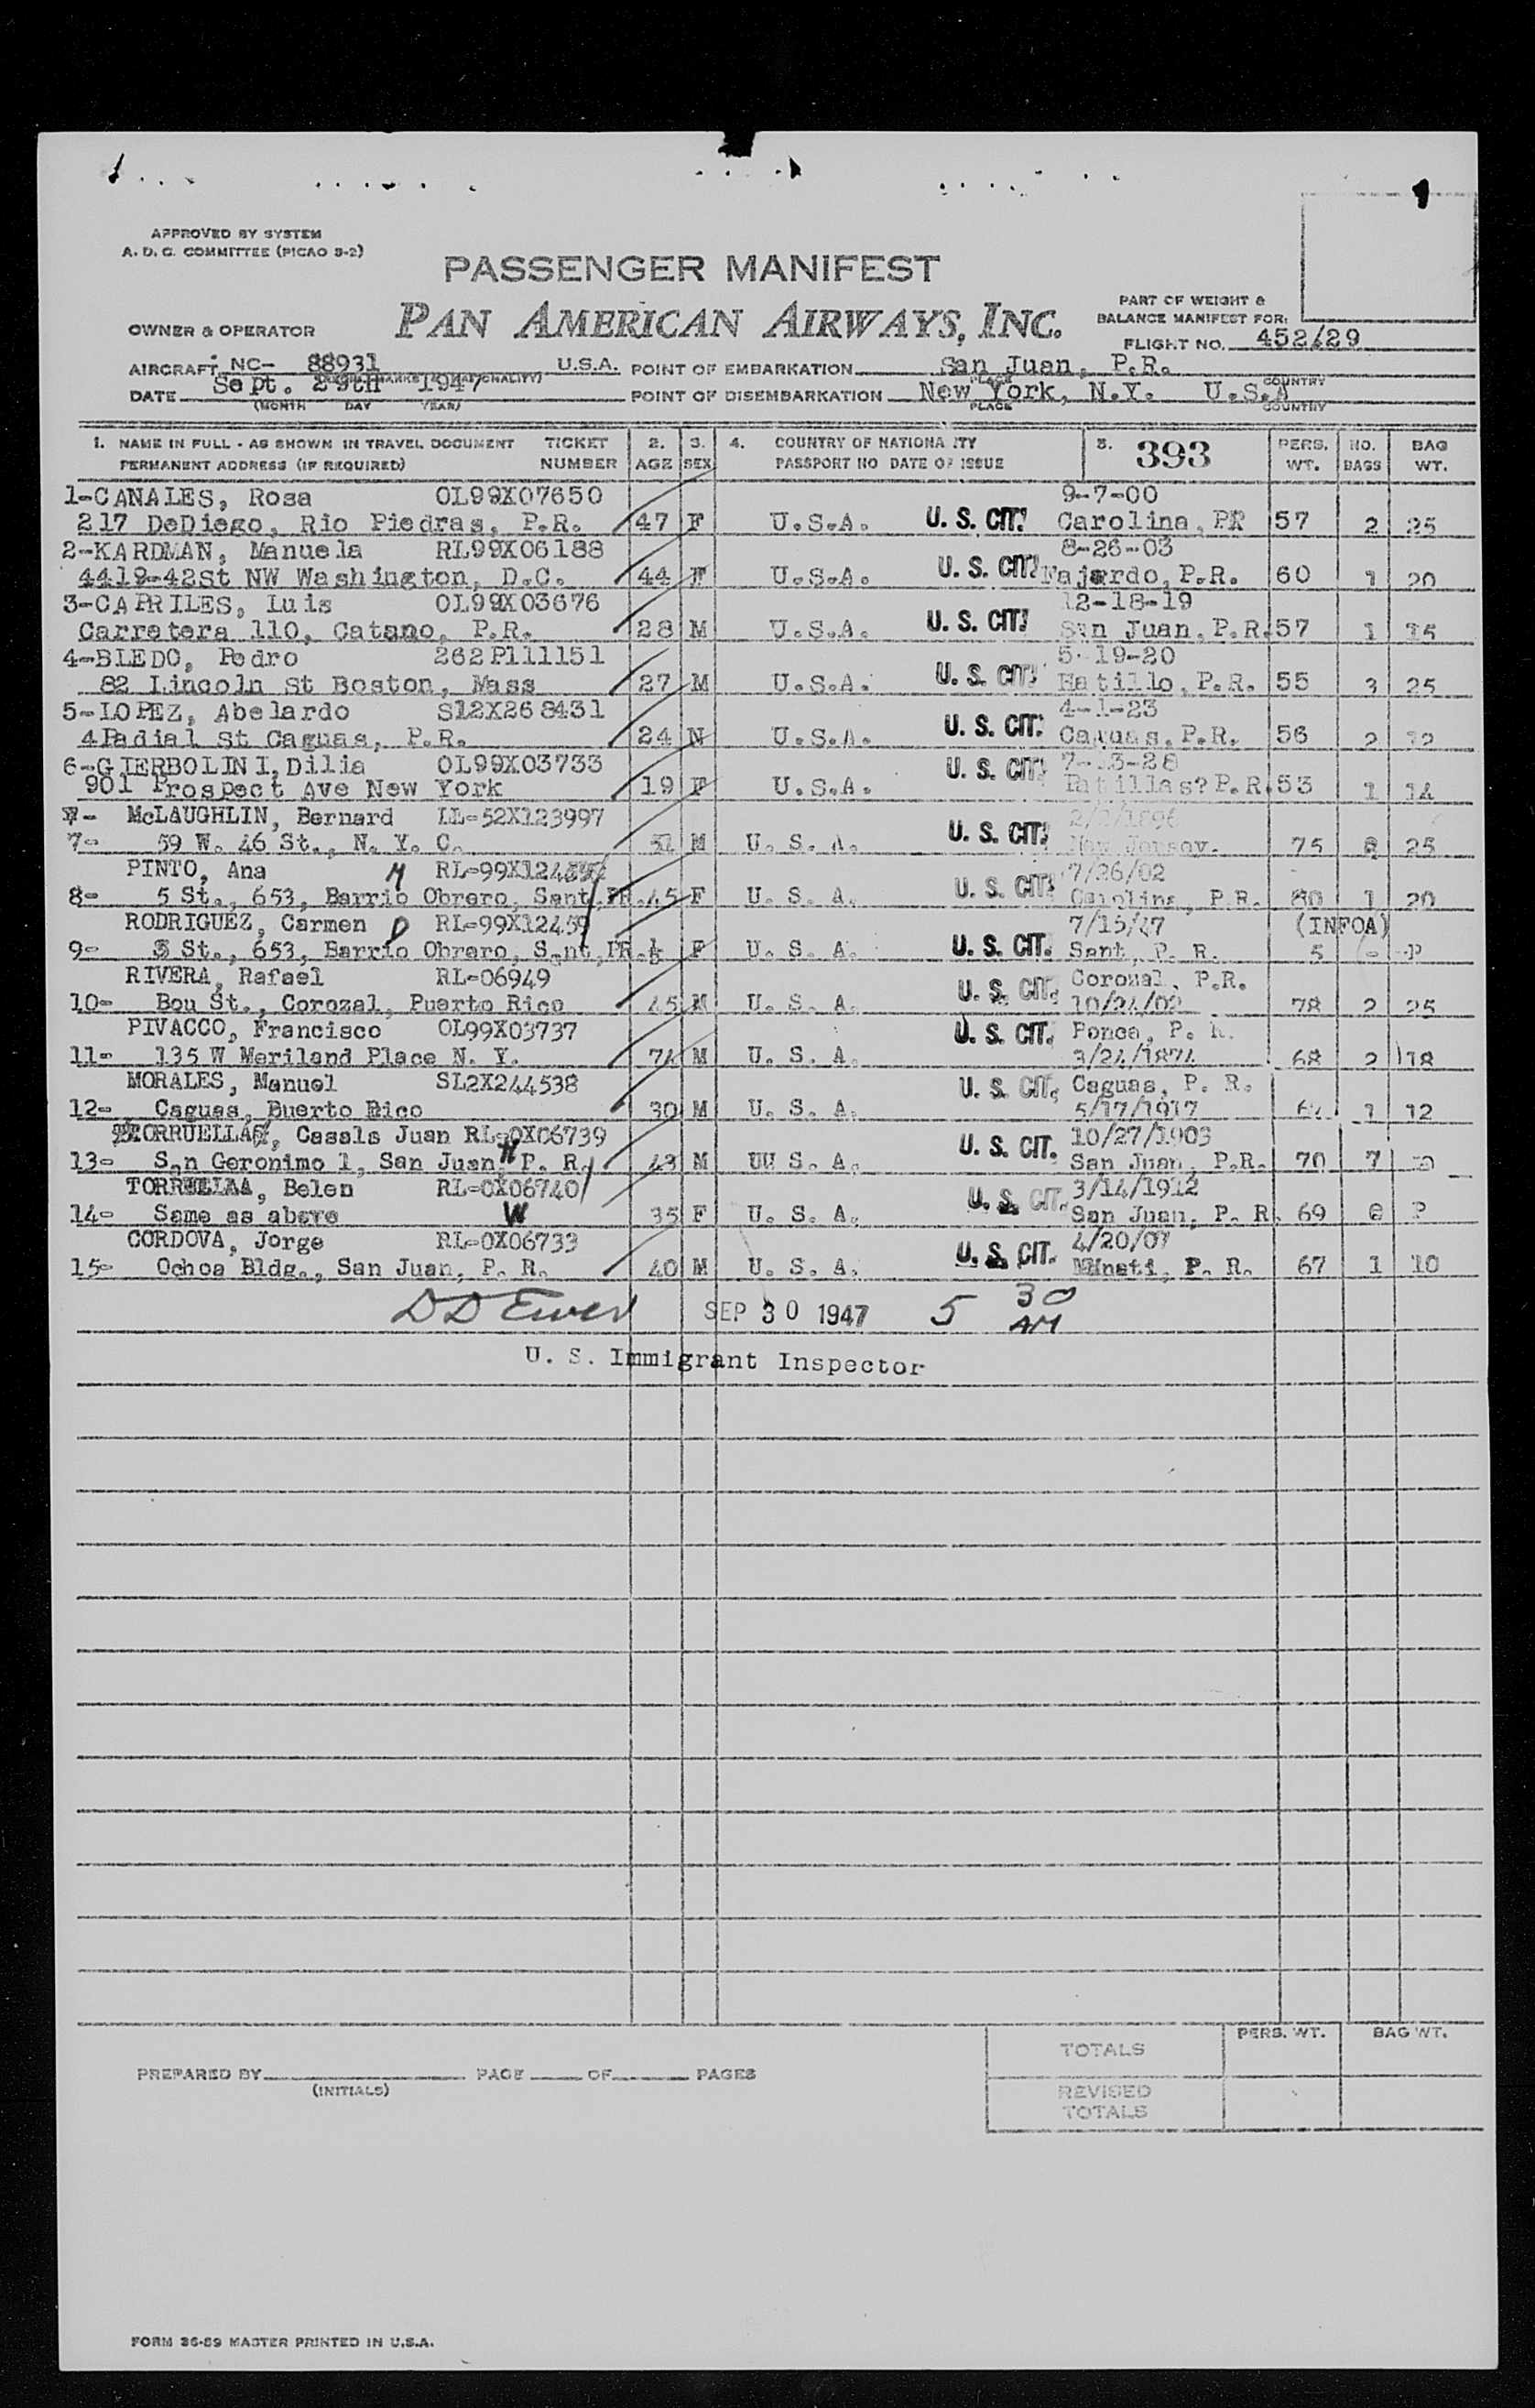 APPROVED BY SYSTEM
A. D. C. COMMITTEE (PICAO 3-2)
PASSENGER MANIFEST
PAN AMERICAN AIRWAYS, INC.
OWNER & OPERATOR
PART OF WEIGHT &
BALANCE MANIFEST FOR:
FLIGHT NO. 452/29
AIRCRAFT NC- 88931 U.S.A. POINT OF EMBARKATION San Juan, P.R.
DATE Sept. 29th 1947 POINT OF DISEMBARKATION New York, N.Y. U.S.A
(MONTH DAY YEAR) PLACE COUNTRY
1. NAME IN FULL - AS SHOWN IN TRAVEL DOCUMENT TICKET 2. 3. 4. COUNTRY OF NATIONA ITY 5. 393 PERS. NO. BAG
PERMANENT ADDRESS (IF REQUIRED) NUMBER AGE SEX PASSPORT NO DATE OF ISSUE WT. BAGS WT.
1-CANALES, Rosa OL99X07650 9-7-00
217 DeDiego, Rio Piedras, P.R. 47 F U.S.A. U. S. CIT. Carolina, PR 57 2 25
2-KARDMAN, Manuela RL99X06188 8-26-03
4419-42St NW Washington, D.C. 44 F U.S.A. U. S. CIT. Fajardo, P.R. 60 1 20
3-CAPRILES, Luis OL99X03676 12-18-19
Carretera 110, Catano, P.R. 28 M U.S.A. U. S. CIT. San Juan, P.R. 57 1 15
4-BLEDO, Pedro 262P111151 5-19-20
82 Lincoln St Boston, Mass 27 M U.S.A. U. S. CIT. Hatillo, P.R. 55 3 25
5-LOPEZ, Abelardo S12X268431 4-1-23
4Padial St Caguas, P.R. 24 U.S.A. U. S. CIT. Caguas, P.R. 56 2 12
6-GIERBOLINI, Dilia OL99X03733
901 Prospect Ave New York 19 F U.S.A. U. S. CIT. Patillas? P.R. 53 1 14
McLAUGHLIN, Bernard LL-52X123997 2/ /1896
7- 59 W. 46 St., N. Y. C. M U. S. A. U. S. CIT. New Jersey. 75 25
PINTO, Ana M 7/26/02
8- 5 St., 653, Barrio Obrero, Sant, PR. 45 F U. S. A. U. S. CIT. Carolina, P.R. 80 1 20
RODRIGUEZ, Carmen D RL-99X12459 7/15/47 (INFOA)
9- St., 653, Barrio Obrero, Sant, PR. F U. S. A. U. S. CIT. Sant, P. R. 5 - P
RIVERA, Rafael RL-06949 Corozal, P.R.
10- Bou St., Corozal, Puerto Rico 45 M U. S. A. U. S. CIT. 10/24/02 78 2 25
PIVACCO, Francisco OL99X03737 Ponce, P. R.
11- 135 W Meriland Place N. Y. 74 M U. S. A. U. S. CIT. 3/24/1874 68 2 18
MORALES, Manuel SL2X244538 Caguas, P. R.
12- Caguas, Buerto Rico 30 M U. S. A. U. S. CIT. 5/17/1917 1 12
TORRUELLAS, Casals Juan RL-0X06739 10/27/1903
13- San Geronimo 1, San Juan, P. R. H 43 M UU S. A. U. S. CIT. San Juan, P.R. 70 7
TORRUELLA, Belen RL-0X06740 3/14/1912
14- Same as above W 35 F U. S. A. U. S. CIT. San Juan, P. R. 69 P
CORDOVA, Jorge RL-0X06733 4/20/07
15- Ochoa Bldg., San Juan, P. R. 40 M U. S. A. U. S. CIT. Mnati, P. R. 67 1 10
SEP 30 1947 5 30 AM
U. S. Immigrant Inspector
TOTALS PERS. WT. BAG WT.
PREPARED BY PAGE OF PAGES
(INITIALS)
REVISED
TOTALS
FORM 36-59 MASTER PRINTED IN U.S.A.